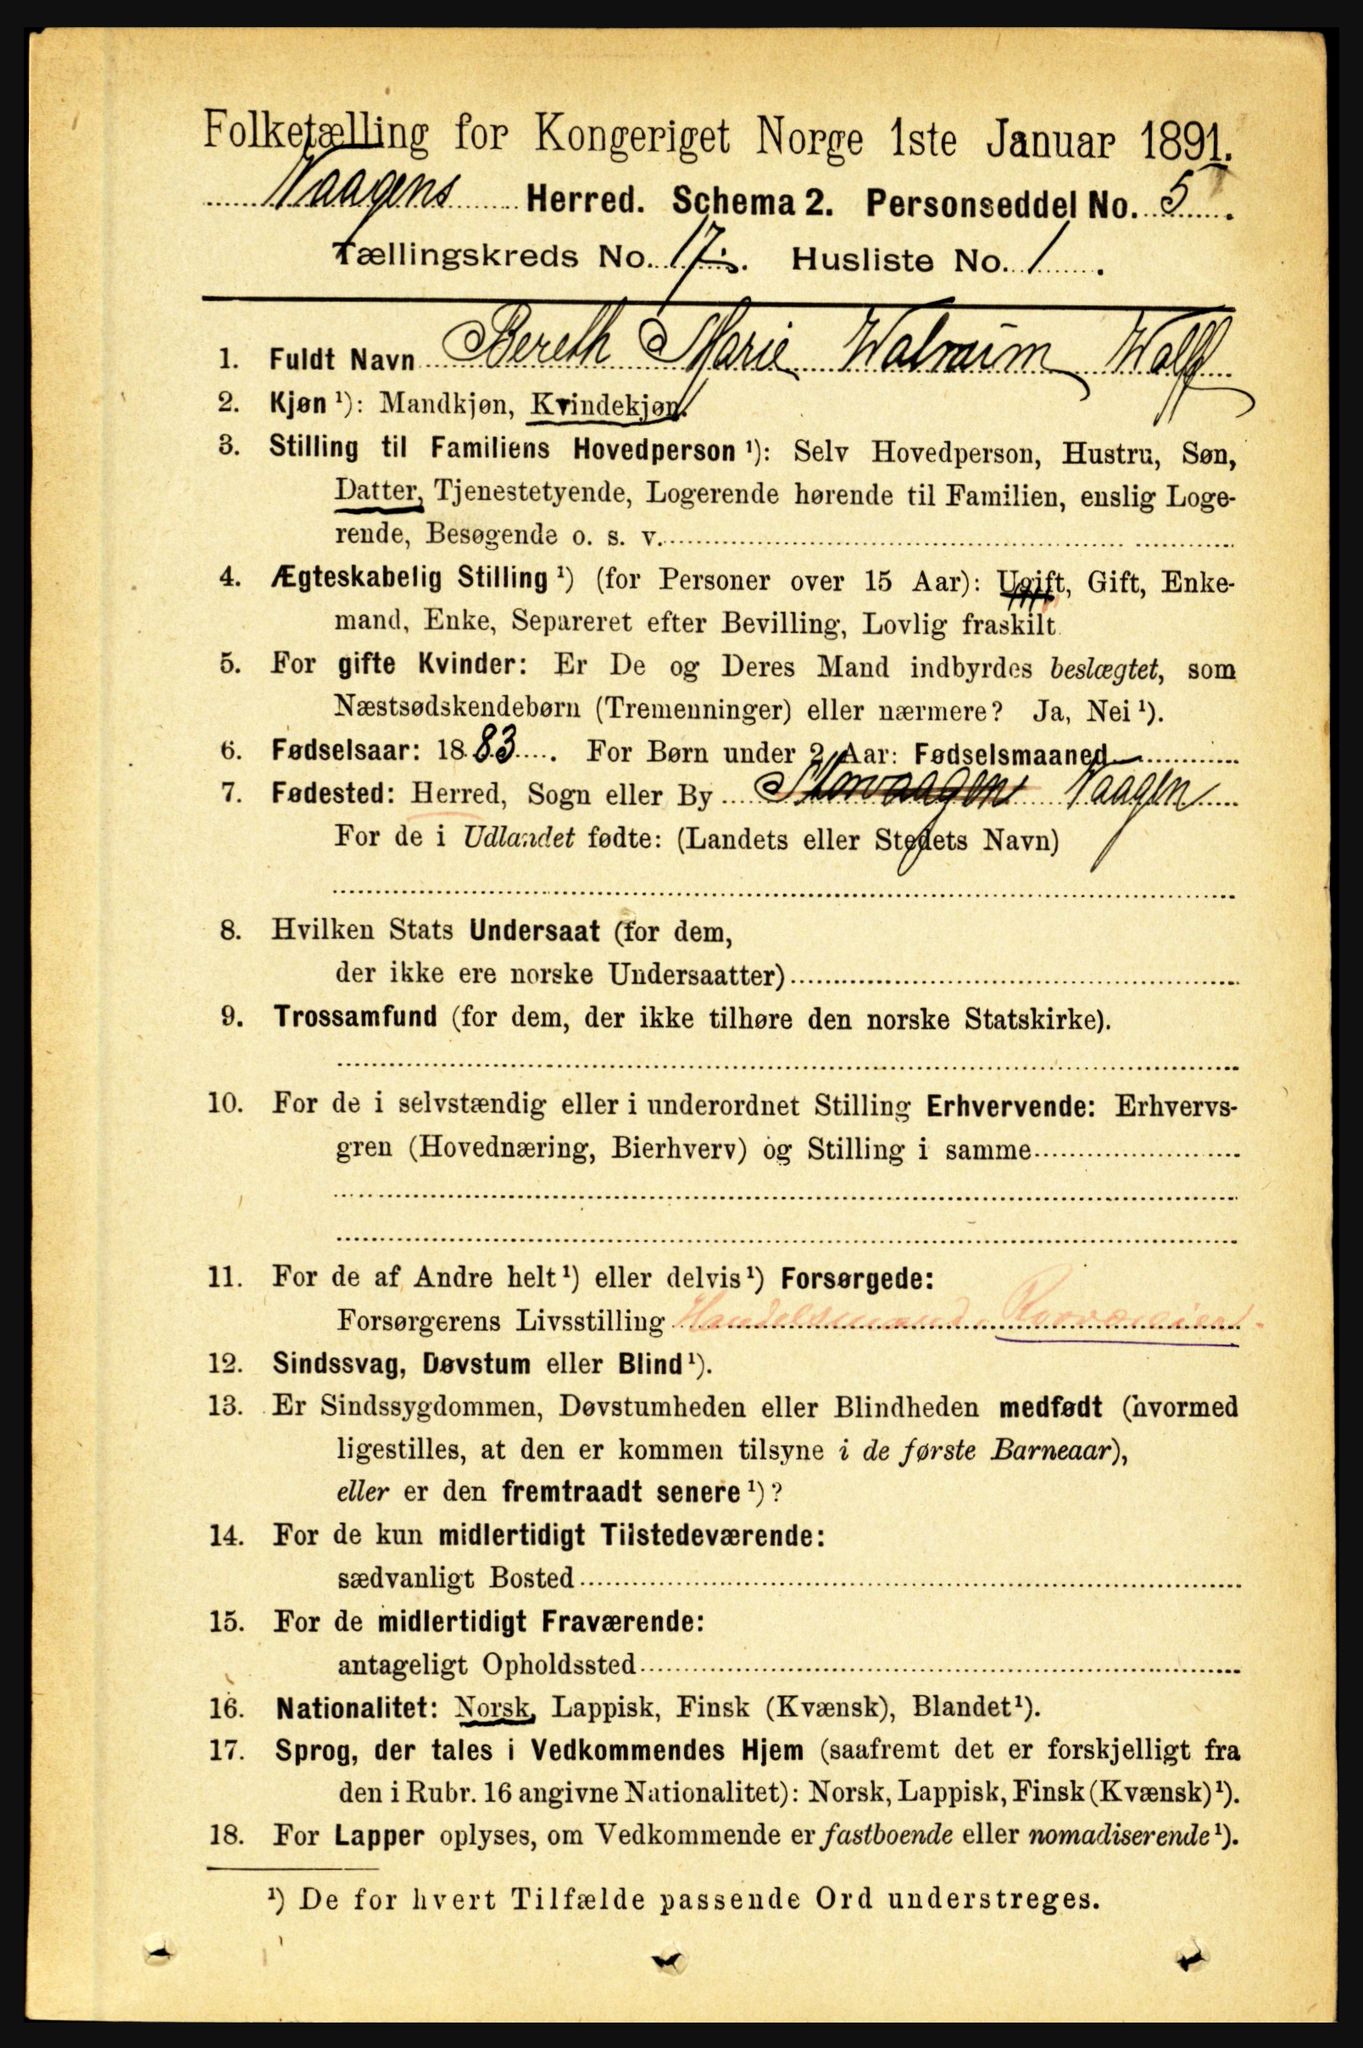 Folketælling for Kongeriget Norge 1ste Januar 1891.
Vaagens Herred. Schema 2. Personseddel No. 5.
Tællingskreds No. 17. Husliste No. 1.
1. Fuldt Navn Bereth Marie Walnum Wolff
2. Kjøn ¹): Mandkjøn, Kvindekjøn.
3. Stilling til Familiens Hovedperson ¹): Selv Hovedperson, Hustru, Søn,
Datter, Tjenestetyende, Logerende hørende til Familien, enslig Loge-
rende, Besøgende o. s. v.
4. Ægteskabelig Stilling ¹) (for Personer over 15 Aar): Ugift, Gift, Enke-
mand, Enke, Separeret efter Bevilling, Lovlig fraskilt
5. For gifte Kvinder: Er De og Deres Mand indbyrdes beslægtet, som
Næstsødskendebørn (Tremenninger) eller nærmere? Ja, Nei ¹).
6. Fødselsaar: 1883. For Børn under 2 Aar: Fødselsmaaned
7. Fødested: Herred, Sogn eller By Storvaagen Vaagen
For de i Udlandet fødte: (Landets eller Stedets Navn)
8. Hvilken Stats Undersaat (for dem,
der ikke ere norske Undersaatter)
9. Trossamfund (for dem, der ikke tilhøre den norske Statskirke).
10. For de i selvstændig eller i underordnet Stilling Erhvervende: Erhvervs-
gren (Hovednæring, Bierhverv) og Stilling i samme
11. For de af Andre helt ¹) eller delvis ¹) Forsørgede:
Forsørgerens Livsstilling Handelsmand.
12. Sindssvag, Døvstum eller Blind ¹).
13. Er Sindssygdommen, Døvstumheden eller Blindheden medfødt (hvormed
ligestilles, at den er kommen tilsyne i de første Barneaar),
eller er den fremtraadt senere ¹)?
14. For de kun midlertidigt Tilstedeværende:
sædvanligt Bosted
15. For de midlertidigt Fraværende:
antageligt Opholdssted
16. Nationalitet: Norsk, Lappisk, Finsk (Kvænsk), Blandet ¹).
17. Sprog, der tales i Vedkommendes Hjem (saafremt det er forskjelligt fra
den i Rubr. 16 angivne Nationalitet): Norsk, Lappisk, Finsk (Kvænsk) ¹).
18. For Lapper oplyses, om Vedkommende er fastboende eller nomadiserende ¹).
¹) De for hvert Tilfælde passende Ord understreges.